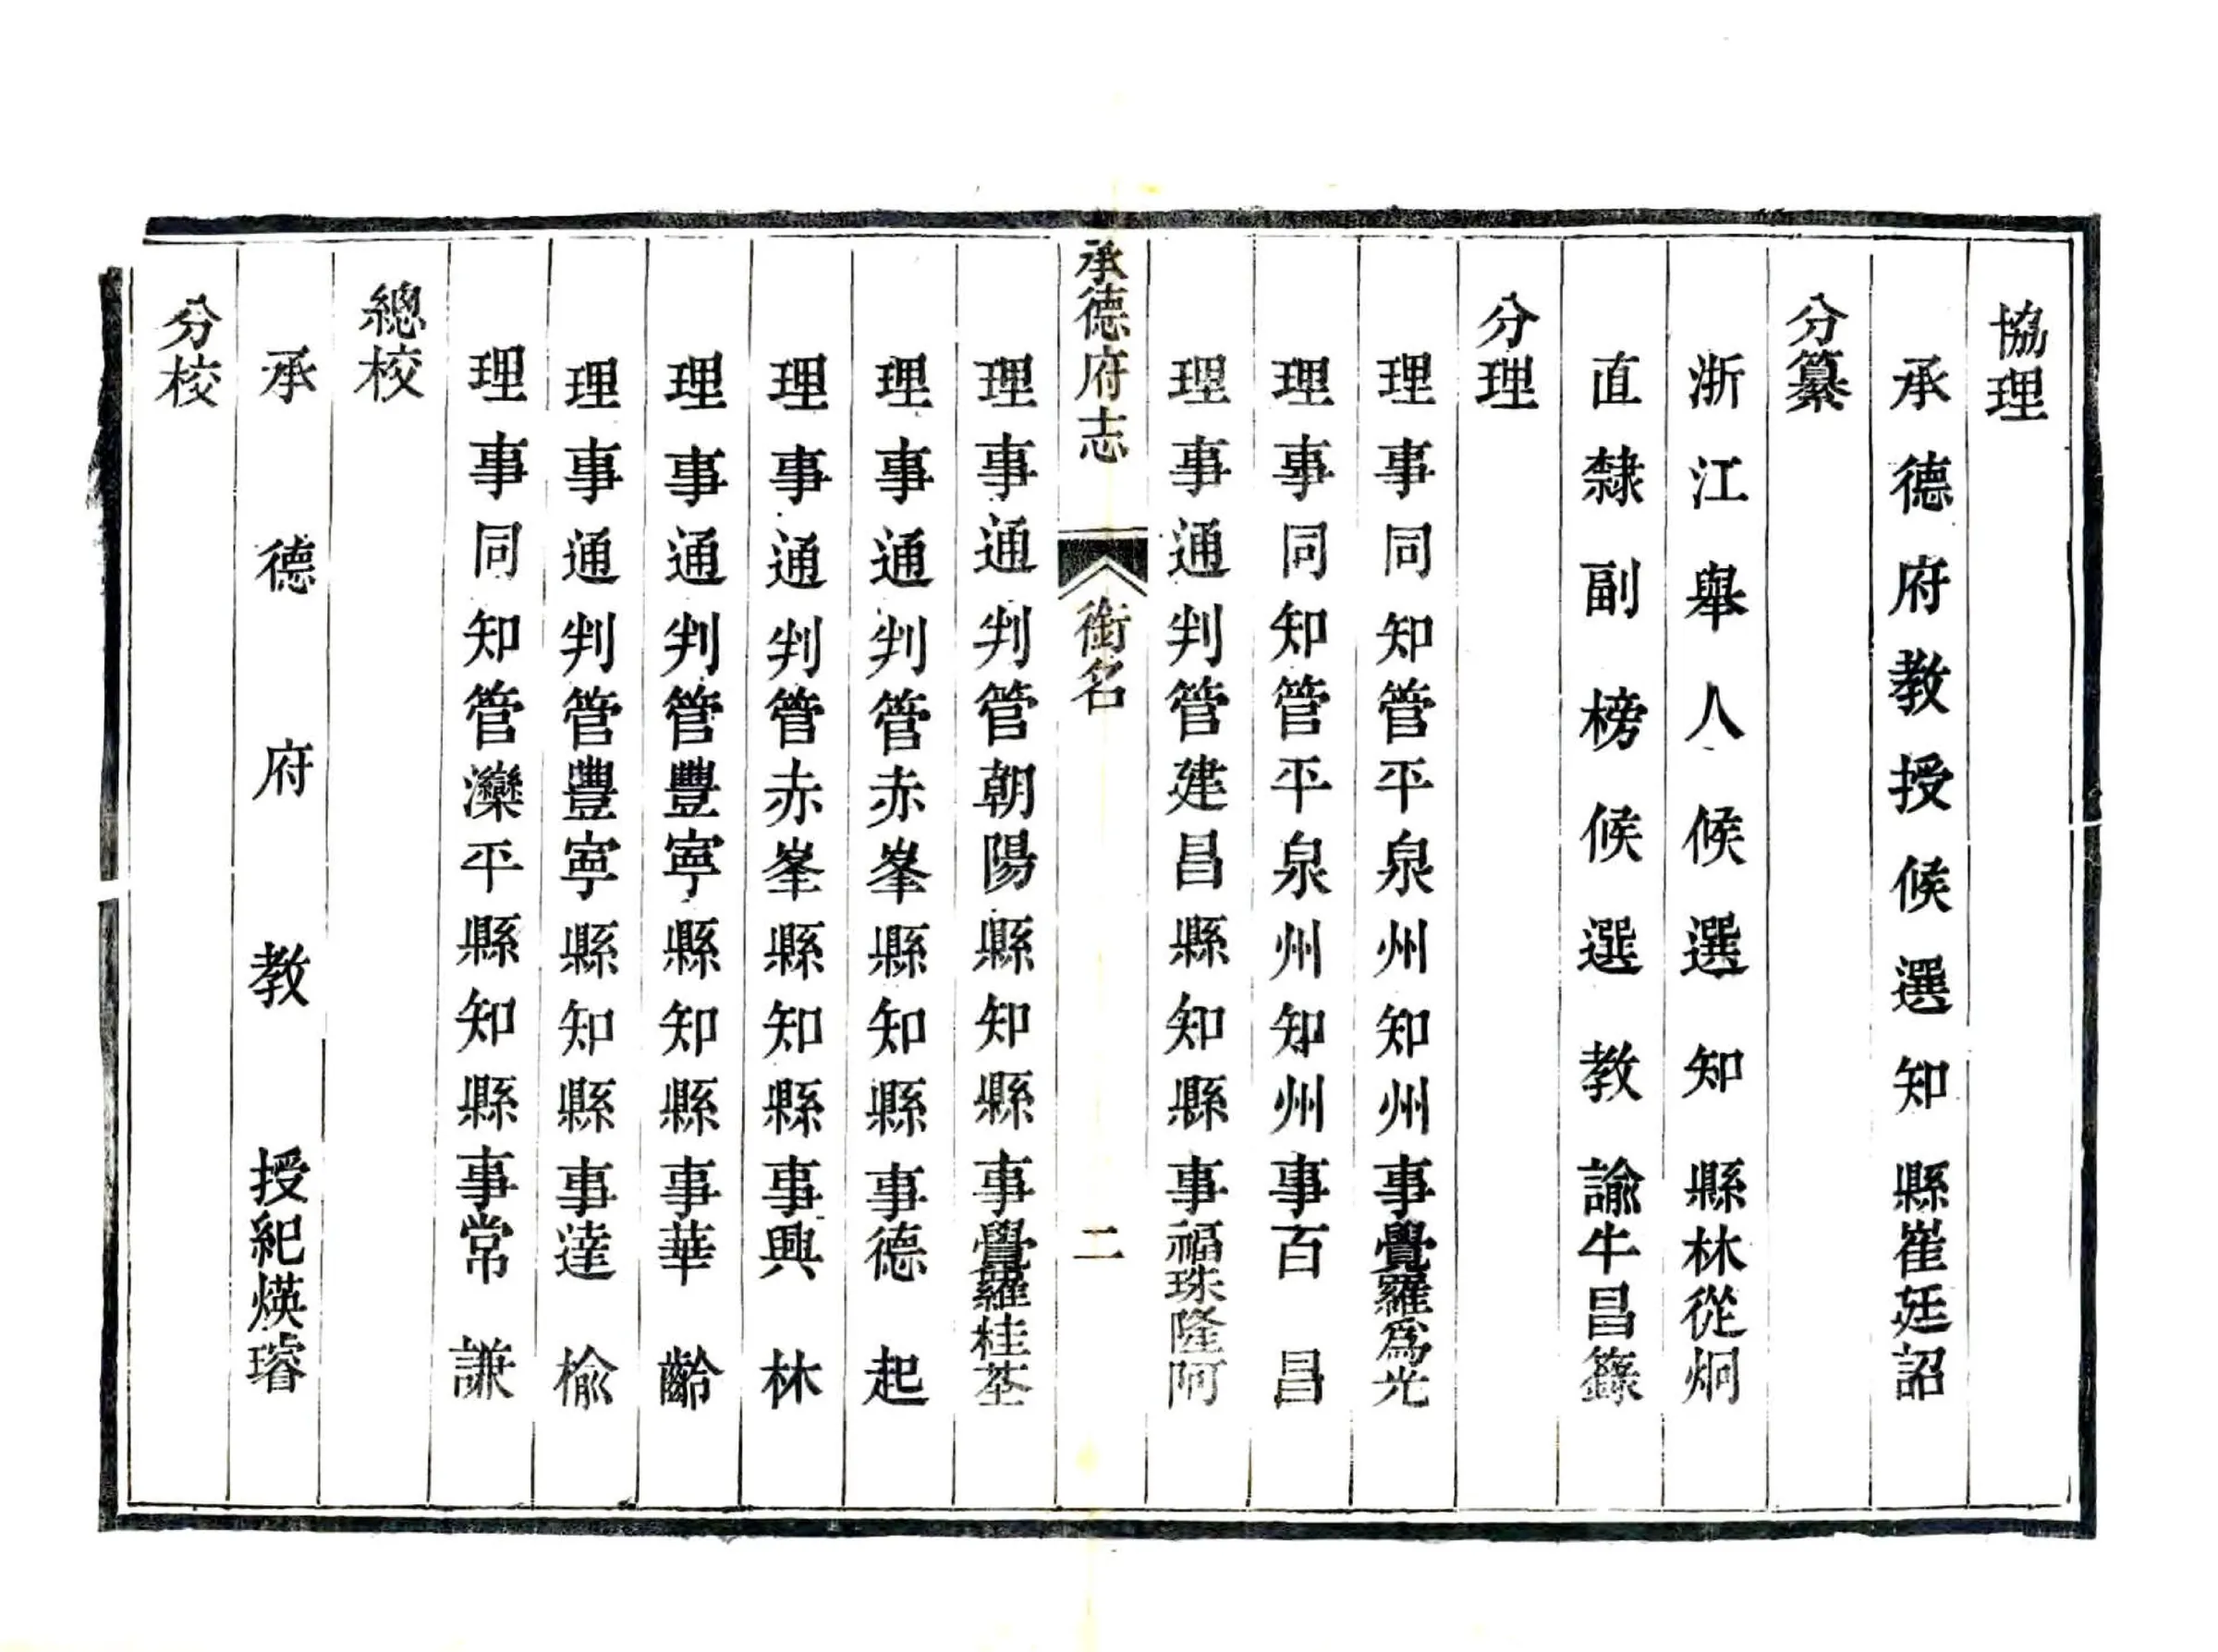 協理
承德府教授候選知縣崔廷詔
分纂
浙江舉人候選知縣林從炯
直隸副榜候選教諭牛昌籙
分理
理事同知管平泉州知州事覺羅爲光
理事同知管平泉州知州事百昌
理事通判管建昌縣知縣事福珠隆阿
承德府志 銜名 二
理事通判管朝陽縣知縣事覺羅桂荃
理事通判管赤峯縣知縣事德起
理事通判管赤峯縣知縣事興林
理事通判管豐寧縣知縣事華齡
理事通判管豐寧縣知縣事達榆
理事同知管灤平縣知縣事常謙
總校
承德府教授紀煐璿
分校